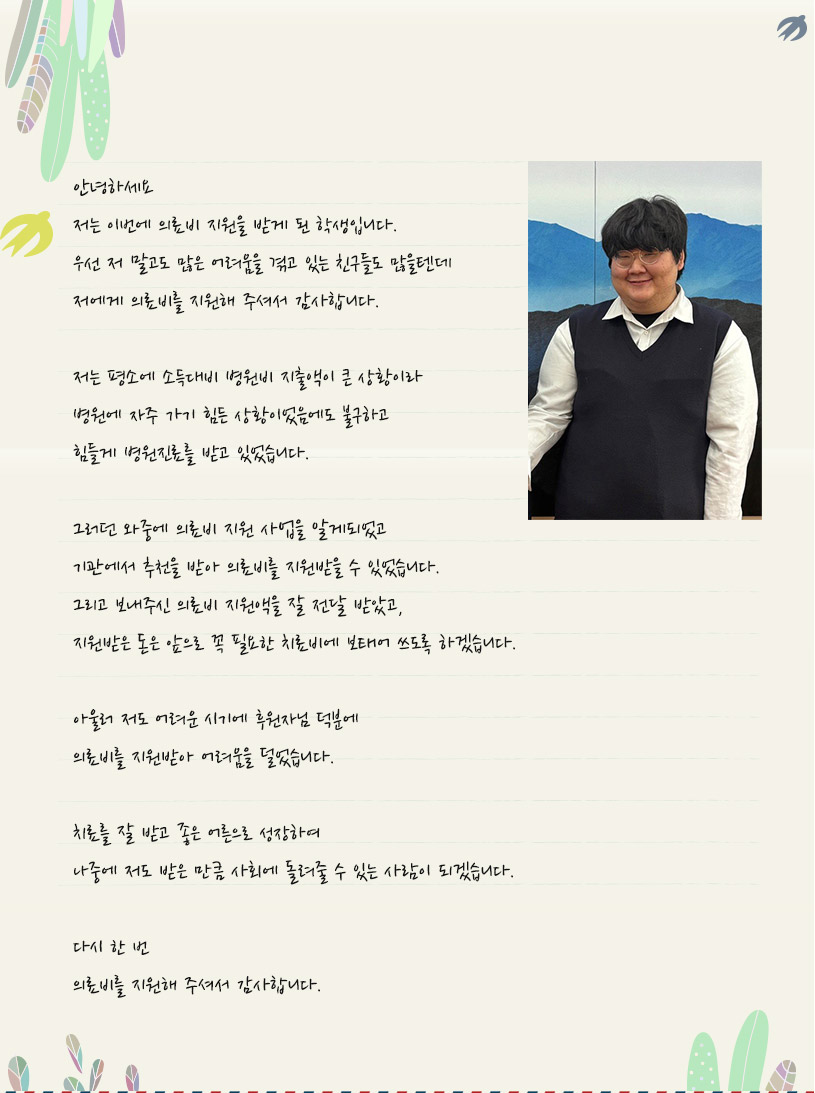 안녕하세요
저는 이번에 의료비 지원을 받게 된 학생입니다.
우선 저 말고도 많은 어려움을 겪고 있는 친구들도 많을텐데
저에게 의료비를 지원해 주셔서 감사합니다.
저는 평소에 소득대비 병원비 지출액이 큰 상황이라
병원에 자주 가기 힘든 상황이었음에도 불구하고
힘들게 병원진료를 받고 있었습니다.
그러던 와중에 의료비 지원 사업을 알게되었고
기관에서 추천을 받아 의료비를 지원받을 수 있었습니다.
그리고 보내주신 의료비 지원액을 잘 전달 받았고,
지원받은 돈은 앞으로 꼭 필요한 치료비에 보태어 쓰도록 하겠습니다.
아울러 저도 어려운 시기에 후원자님 덕분에
의료비를 지원받아 어려움을 덜었습니다.
치료를 잘 받고 좋은 어른으로 성장하여
나중에 저도 받은 만큼 사회에 돌려줄 수 있는 사람이 되겠습니다.
다시 한 번
의료비를 지원해 주셔서 감사합니다.